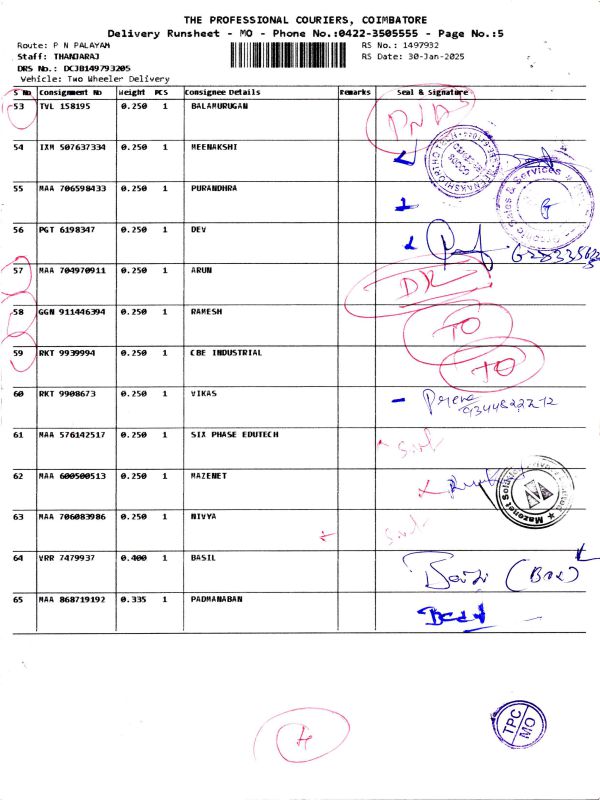 THE PROFESSIONAL COURIERS, COIMBATORE
Delivery Runsheet - MO - Phone No.:0422-3505555 - Page No.:5
Route: P N PALAYAM
RS No.: 1497932
Staff: THANJARAJ
RS Date: 30-Jan-2025
DRS No.: DCJB149793205
Vehicle: Two Wheeler Delivery
S No Consignment No Weight PCS Consignee Details Remarks Seal & Signature
53 TVL 158195 0.250 1 BALAMURUGAN
54 IXM 507637334 0.250 1 MEENAKSHI
55 MAA 706598433 0.250 1 PURANDHRA
56 PGT 6198347 0.250 1 DEV
57 MAA 704970911 0.250 1 ARUN DR
58 GGN 911446394 0.250 1 RAMESH TO
59 RKT 9939994 0.250 1 CBE INDUSTRIAL TO
60 RKT 9908673 0.250 1 VIKAS
61 MAA 576142517 0.250 1 SIX PHASE EDUTECH
62 MAA 600500513 0.250 1 MAZENET
63 MAA 706083986 0.250 1 NIVYA
64 VRR 7479937 0.400 1 BASIL
65 MAA 868719192 0.335 1 PADMANABAN
TPC
MO